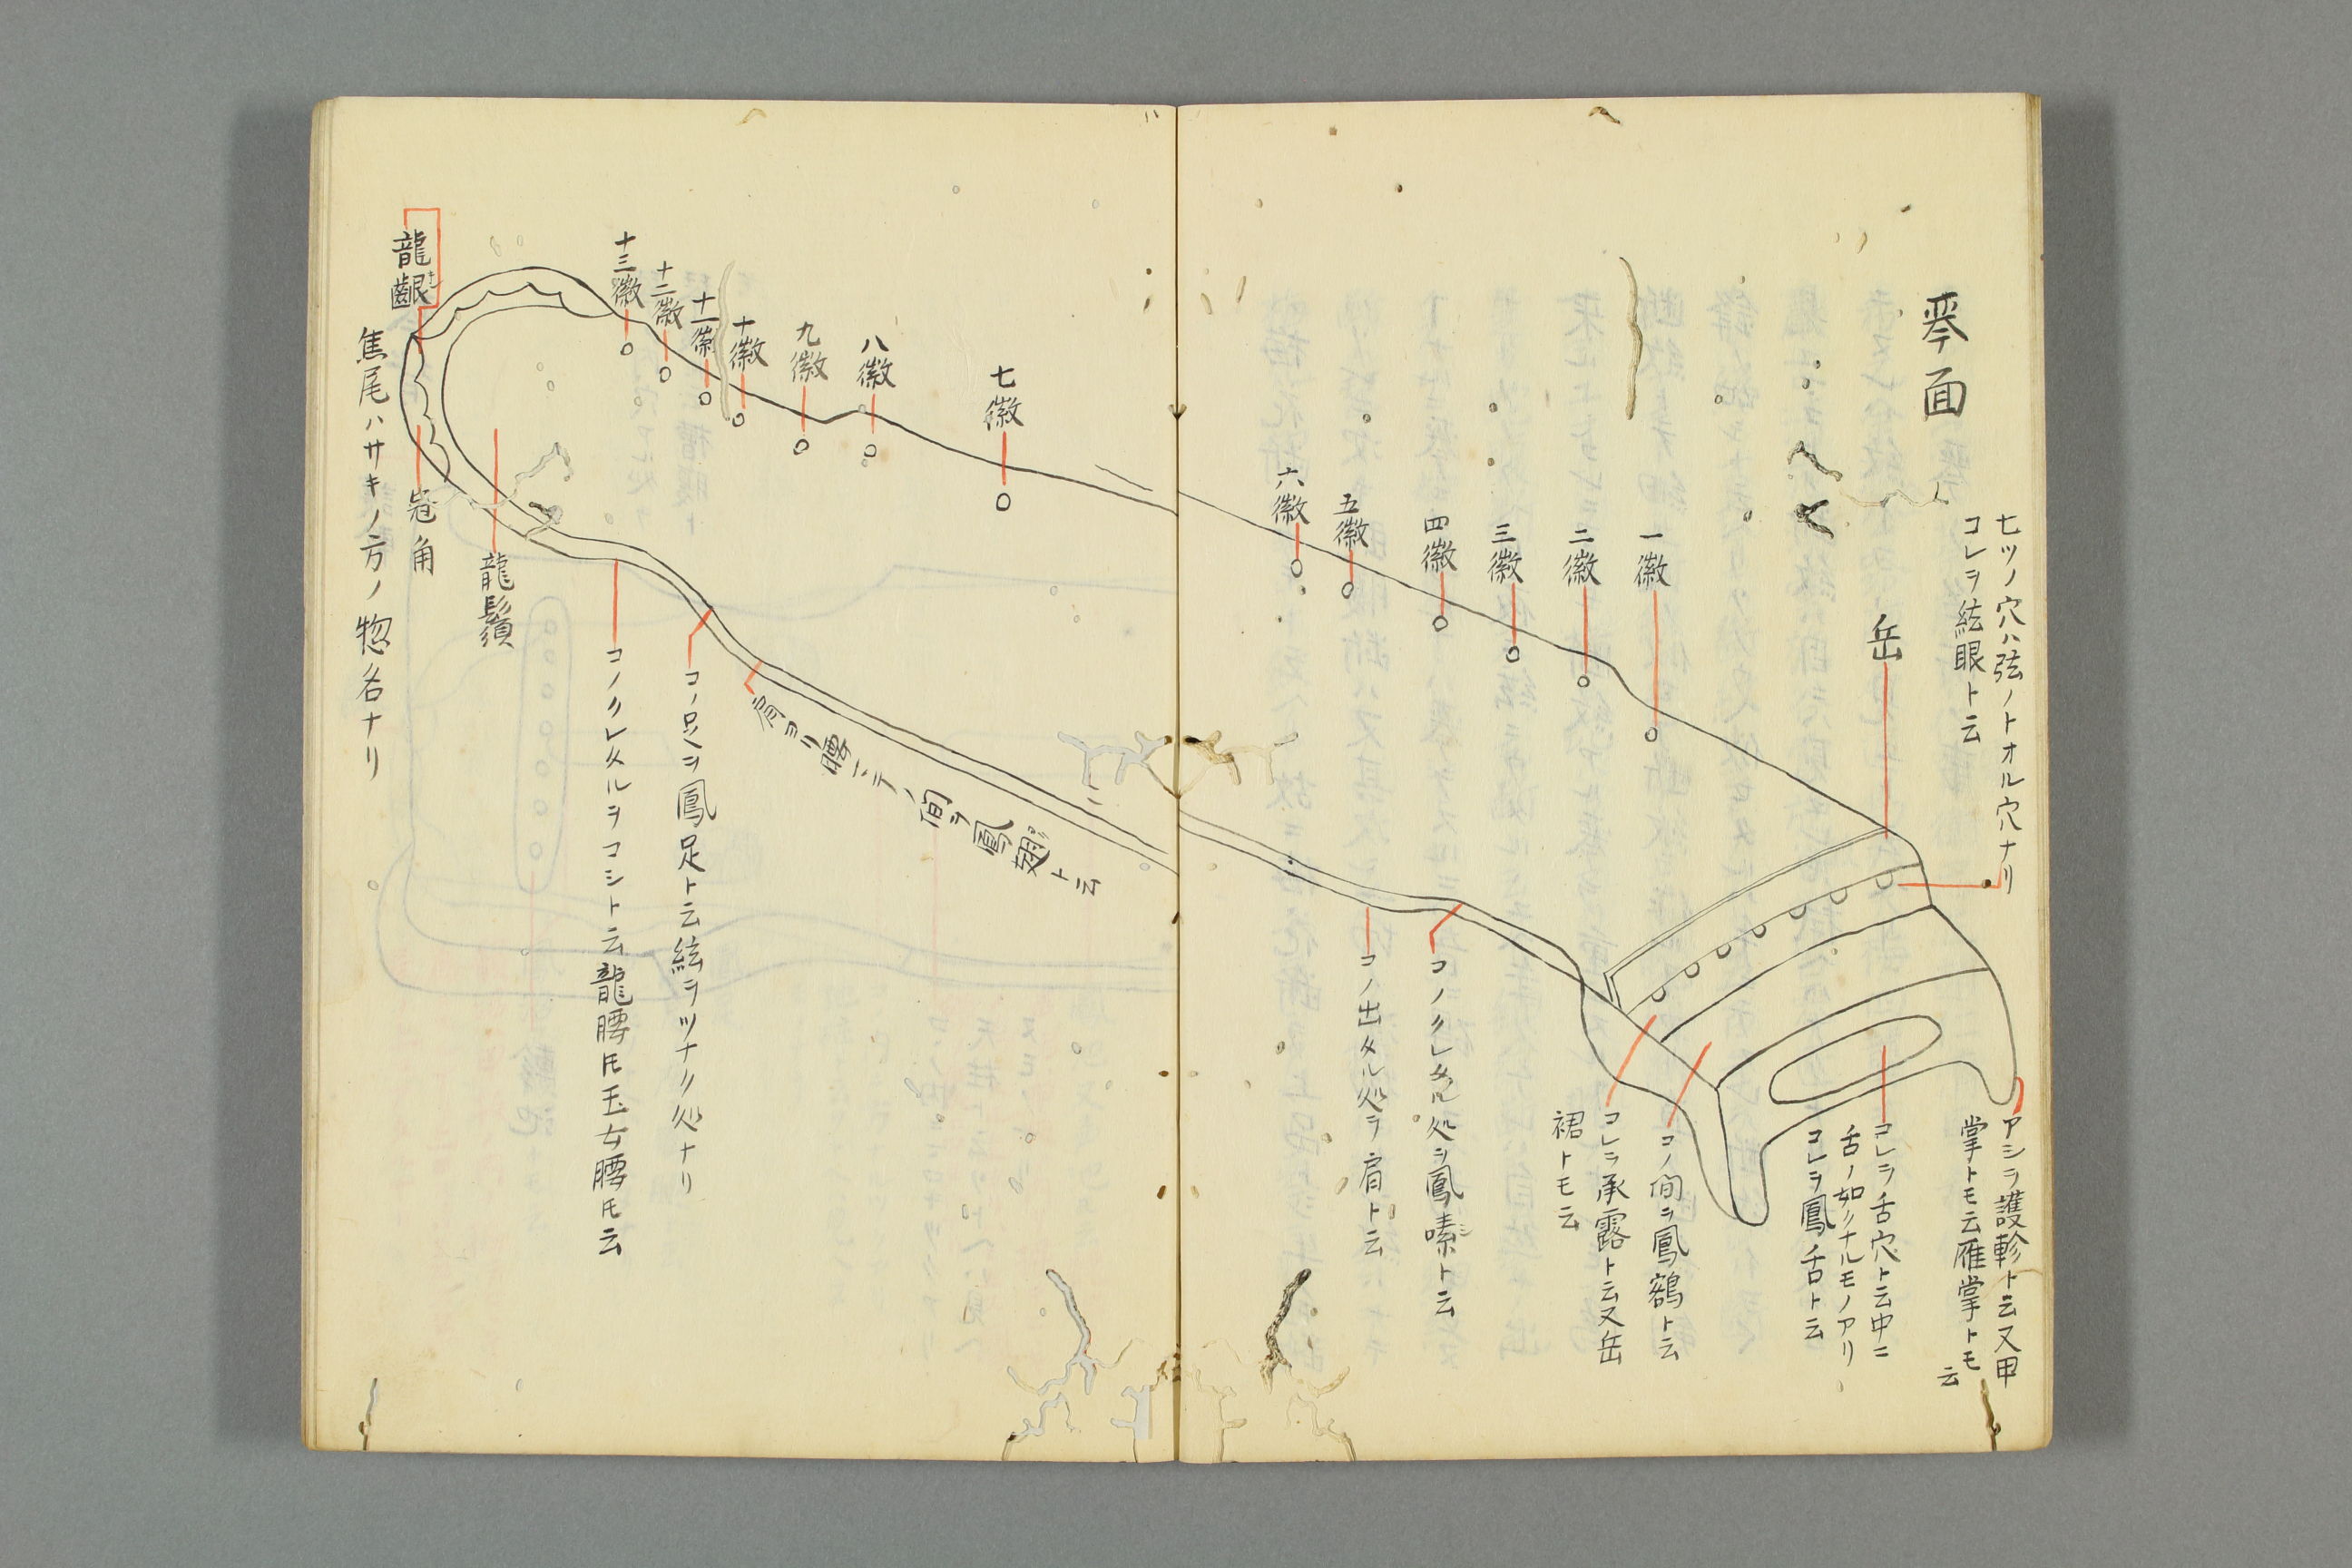 琹面
七ツノ穴ハ弦ノトオル穴ナリ
コレヲ絃眼ト云
岳
一徽
二徽
三徽
四徽
五徽
六徽
アシヲ護軫ト云又甲
掌トモ云雁掌トモ
云
コレヲ舌穴ト云中ニ
舌ノ如クナルモノアリ
コレヲ鳳舌ト云
コノ間ヲ鳳鶴ト云
コレヲ承露ト云又岳
裙トモ云
コノクレタル処ヲ鳳嗉ト云
コノ出タル処ヲ肩ト云
七徽
八徽
九徽
十徽
十一徽
十二徽
十三徽
肩ヨリ腰ニテノ間ヲ鳳翅ト云
コノ足ヲ鳳足ト云絃ヲツナク処ナリ
コノクレタルヲコシト云龍腰トモ玉女腰トモ云
龍鬚
龍齦
冠角
焦尾ハサキノ方ノ惣名ナリ